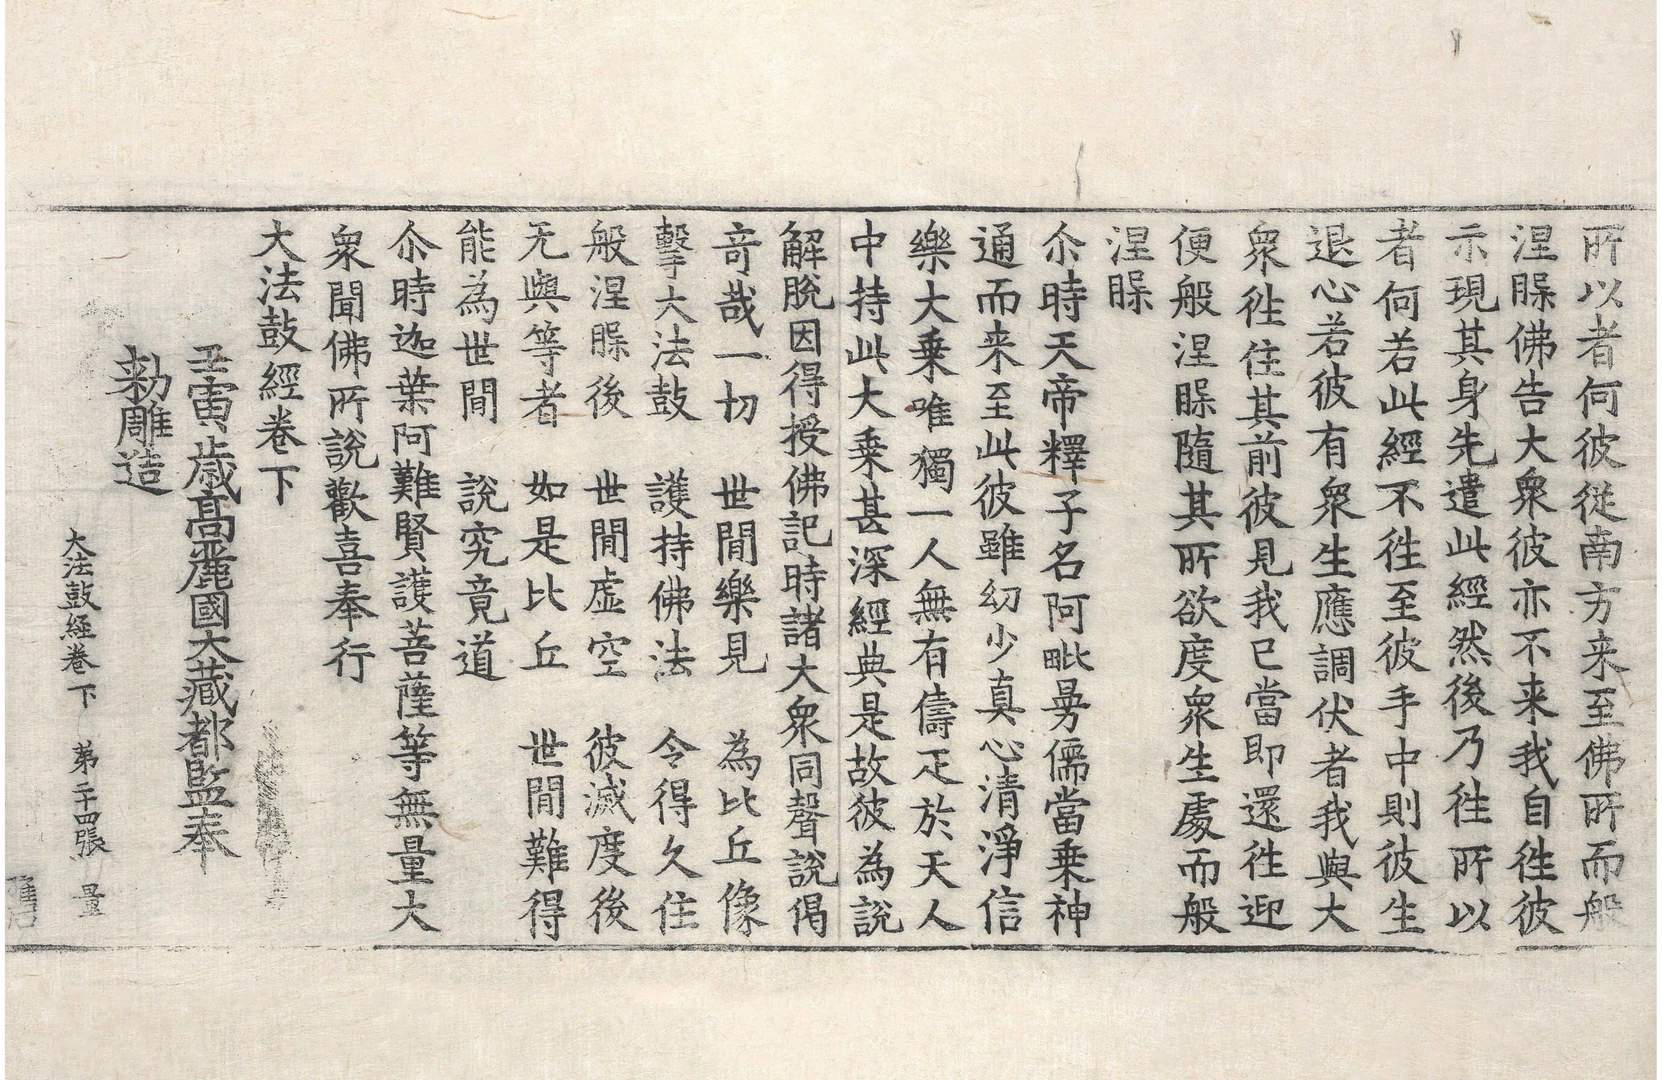 所以者何彼從南方来至佛所而般
涅槃佛告大衆彼亦不来我自徃彼
示現其身先遣此經然後乃徃所以
者何若此經不徃至彼手中則彼生
退心若彼有衆生應調伏者我與大
衆徃住其前彼見我已當即還徃迎
便般涅槃隨其所欲度衆生處而般
涅槃
尒時天帝釋子名阿毗曼儒當乗神
通而来至此彼雖幼少真心清淨信
樂大乗唯獨一人無有儔疋於天人
中持此大乗甚深經典是故彼為說
解脫因得授佛記時諸大衆同聲說偈
竒哉一切　世間樂見　為比丘像
擊大法鼓　護持佛法　令得久住
般涅槃後　世間虛空　彼滅度後
无與等者　如是比丘　世間難得
能為世間　說究竟道
尒時迦葉阿難賢護菩薩等無量大
衆聞佛所說歡喜奉行
大法鼓經卷下
壬寅歲高麗國大藏都監奉
勑雕造
大法鼓経卷下　苐二十四張　量